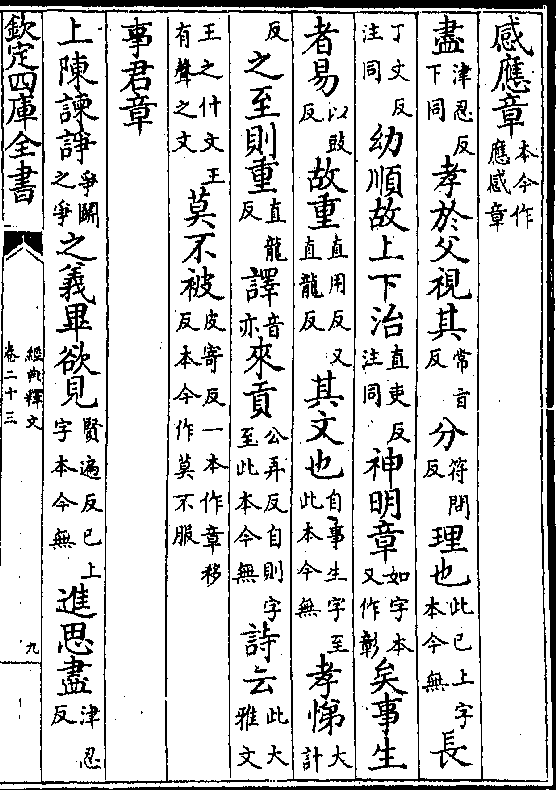 感應章本今作應感章
盡津忍反下同孝於父視其常旨反分符問反理也此已上字本今無長
丁丈反注同幼順故上下治直吏反注同神明章如字本又作彰矣事生
者易以豉反故重直用反又直龍反其文也自事生字至此本今無孝悌大計
反之至則重直龍反譯音亦來貢公弄反自則字至此本今無詩云此大雅文
王之什文王有聲之文莫不被皮寄反一本作章移反本今作莫不服
事君章
上陳諫諍爭鬭之爭之義畢欲見賢遍反已上字本今無進思盡津忍反
欽定四庫全書
經典釋文
卷二十三
九